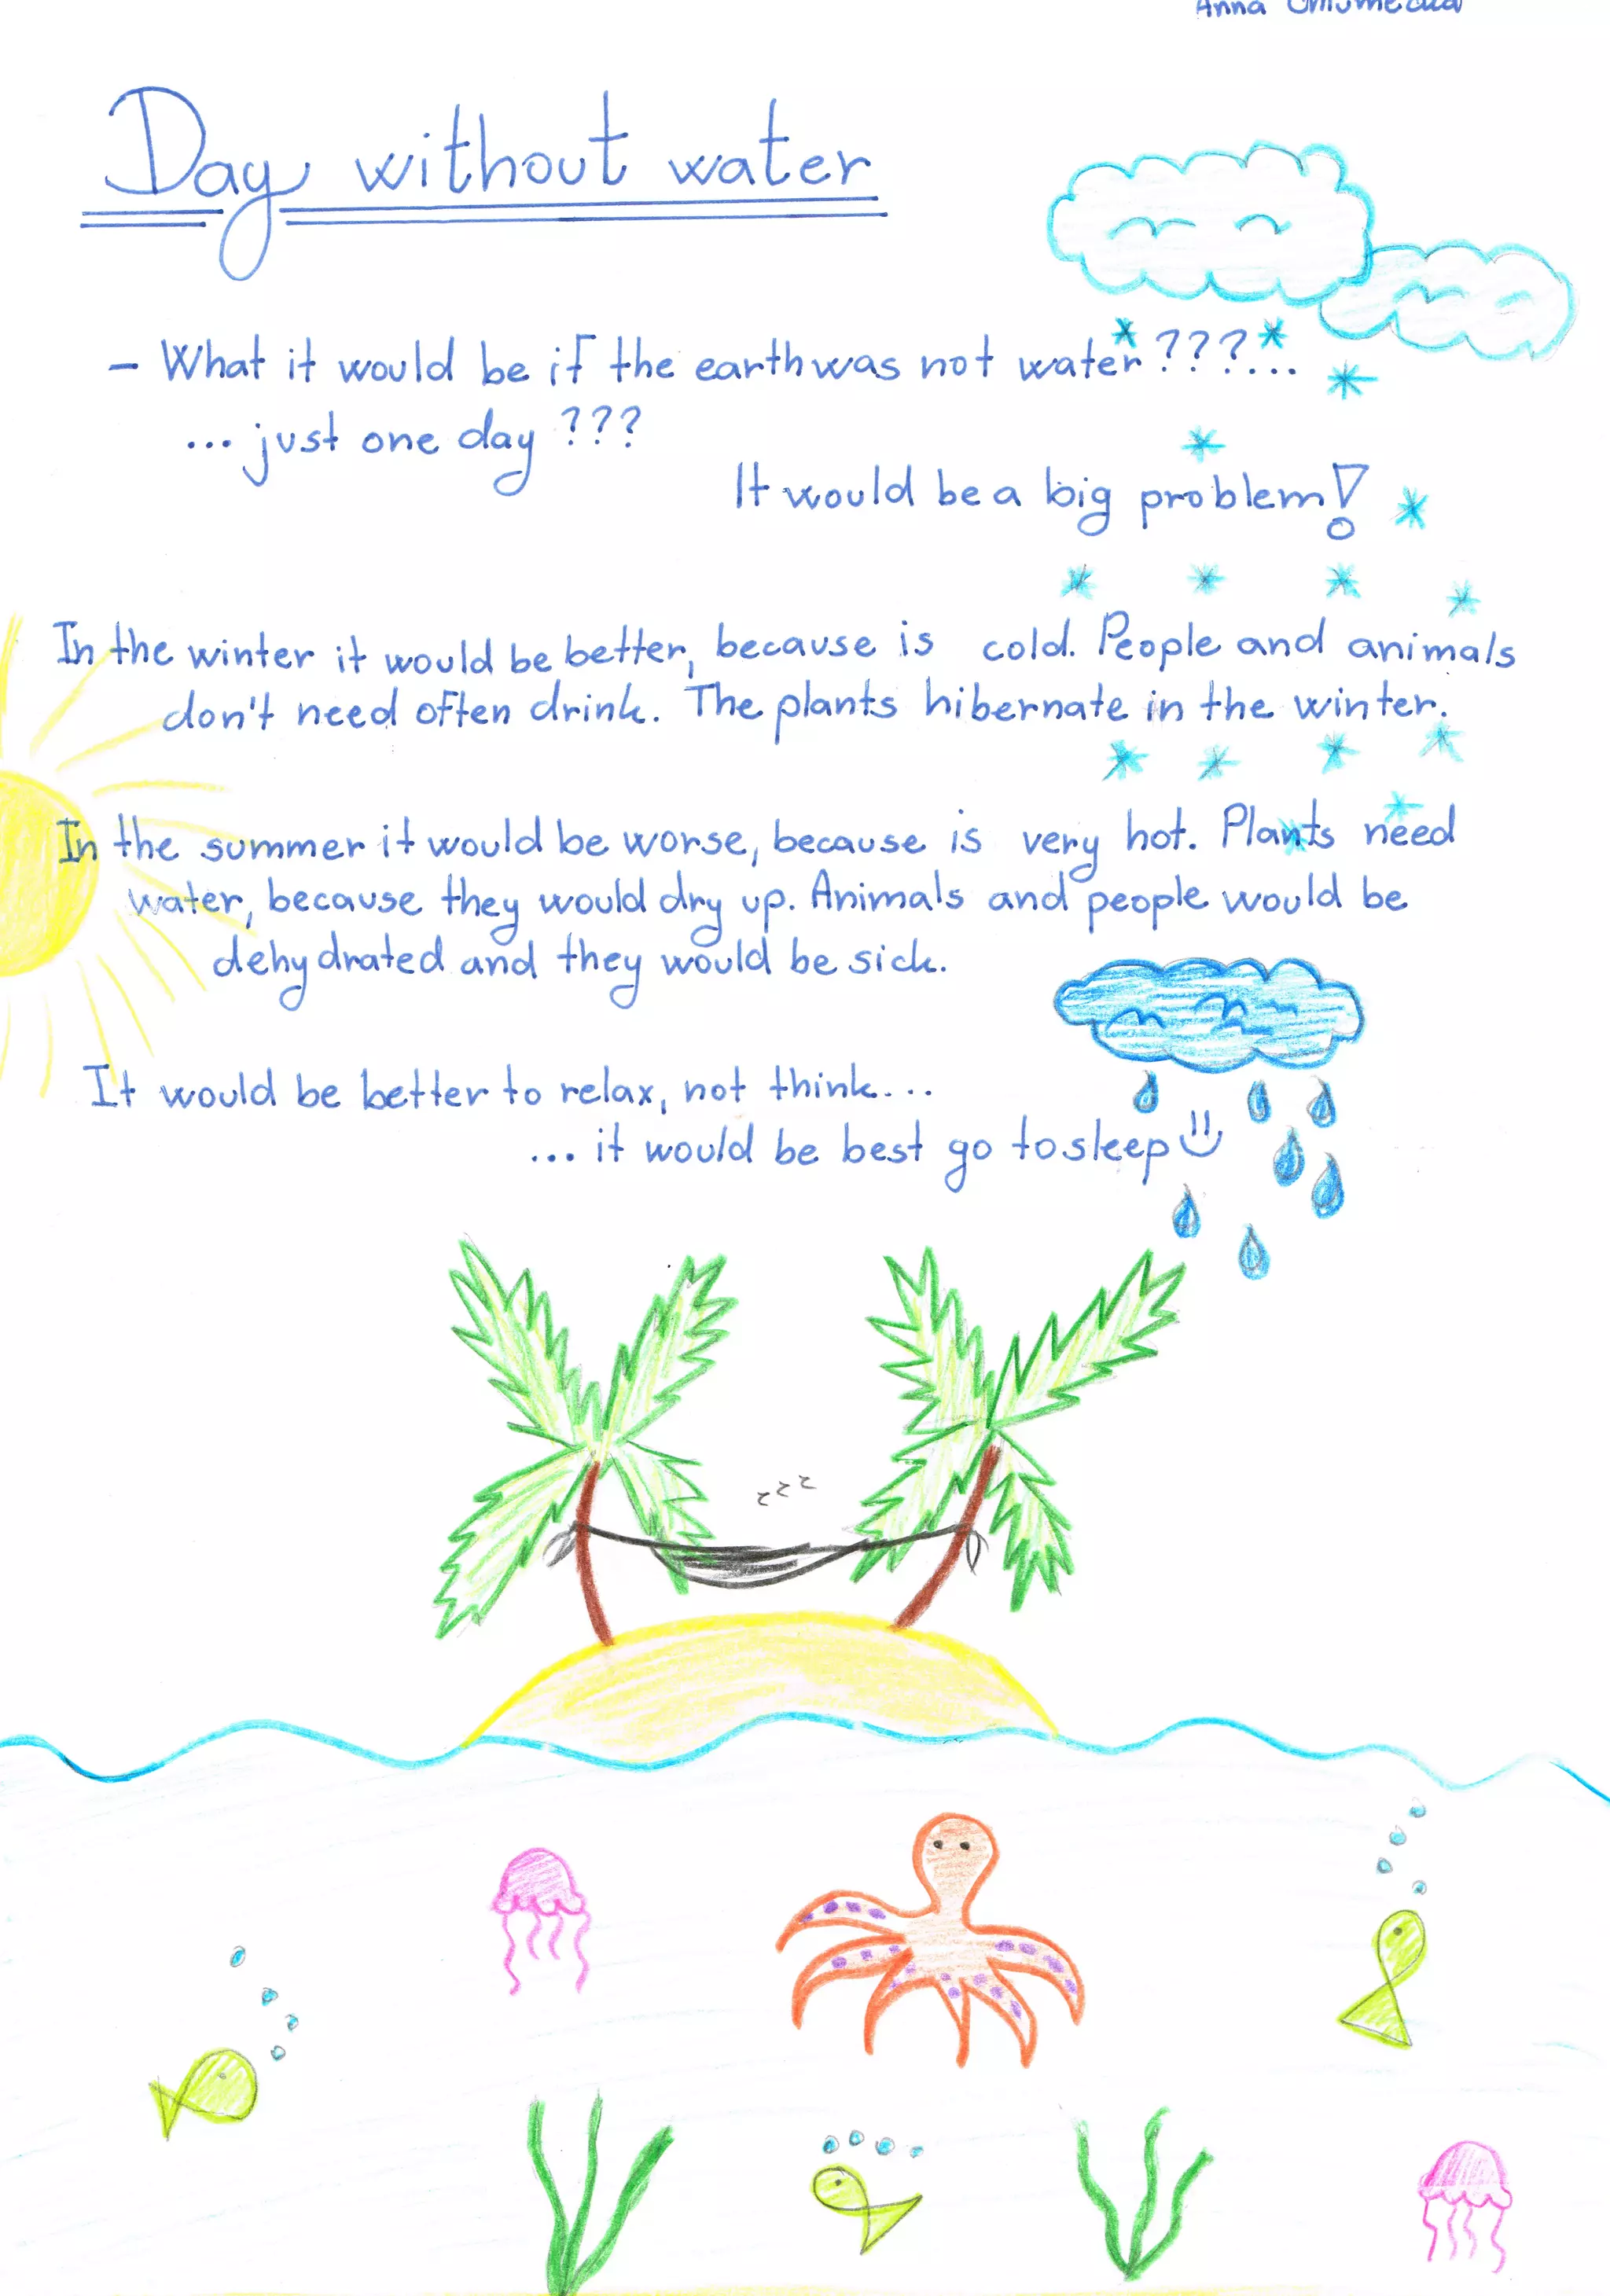 Anna
Day without water
– What it would be if the earth was not water???...
... just one day ???
It would be a big problem!
In the winter it would be better, because is cold. People and animals
don't need often drink. The plants hibernate in the winter.
In the summer it would be worse, because is very hot. Plants need
water, because they would dry up. Animals and people would be
dehydrated and they would be sick.
It would be better to relax, not think....
... it would be best go to sleep
zzz